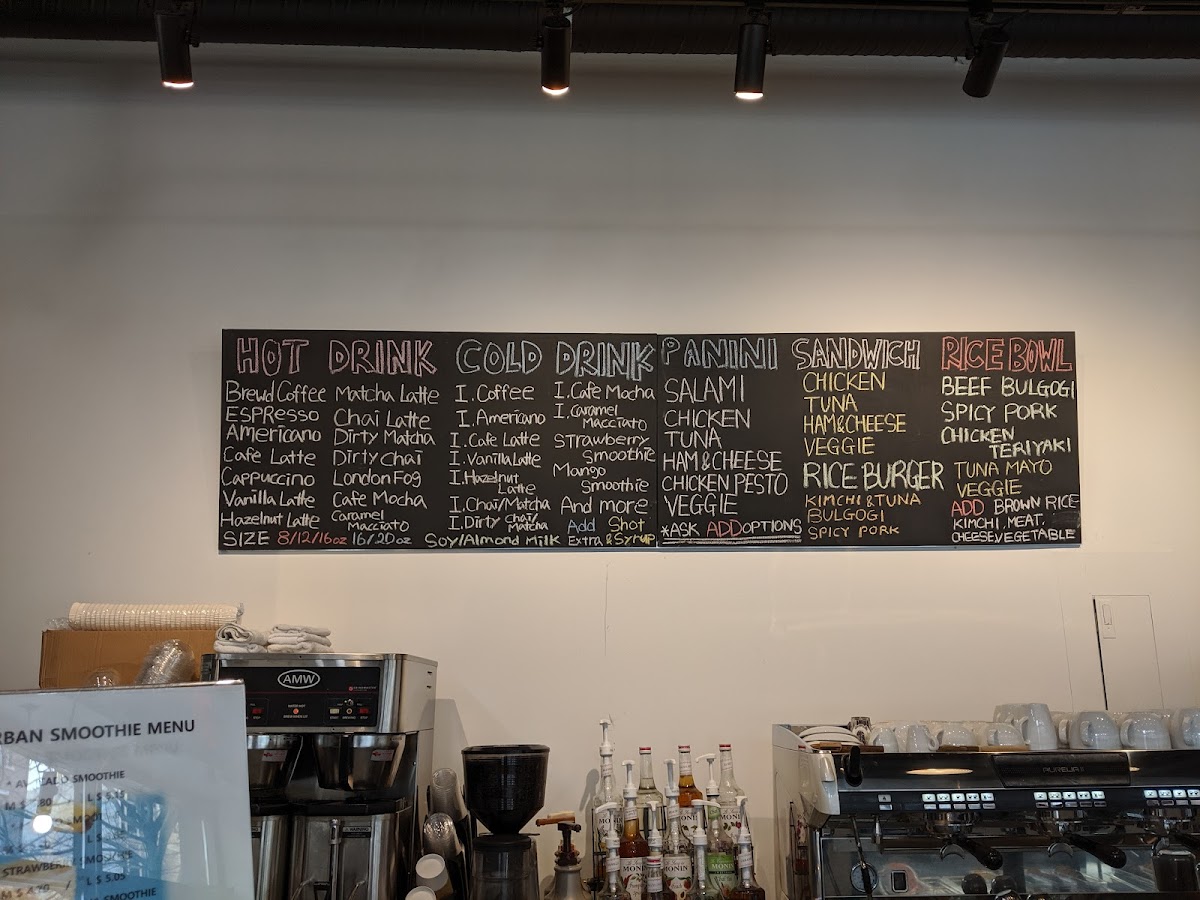 HOT DRINK
Brewd Coffee
ESPRESSO
Americano
Cafe Latte
Cappuccino
Vanilla Latte
Hazelnut Latte
Matcha Latte
Chai Latte
Dirty Matcha
Dirty Chai
London Fog
Cafe Mocha
Caramel
Macciato
SIZE 8/12/16oz 16/20oz
COLD DRINK
I.Coffee
I.Americano
I.Cafe Latte
I.Vanilla Latte
I.Hazelnut
Latte
I.Chai/Matcha
I.Dirty Chai/
Matcha
I.Cafe Mocha
I.Caramel
Macciato
Strawberry
Smoothie
Mango
Smoothie
And more
Add Shot
Soy/Almond Milk Extra & Syrup
PANINI
SALAMI
CHICKEN
TUNA
HAM&CHEESE
CHICKEN PESTO
VEGGIE
*ASK ADD OPTIONS
SANDWICH
CHICKEN
TUNA
HAM&CHEESE
VEGGIE
RICE BURGER
KIMCHI & TUNA
BULGOGI
SPICY PORK
RICE BOWL
BEEF BULGOGI
SPICY PORK
CHICKEN
TERIYAKI
TUNA MAYO
VEGGIE
ADD BROWN RICE
KIMCHI. MEAT.
CHEESE.VEGETABLE
AMW
RBAN SMOOTHIE MENU
* AVOCADO SMOOTHIE
STRAWBERRY SMOOTHIE
L $ 5.05
SMOOTHIE
MONIN
MONIN